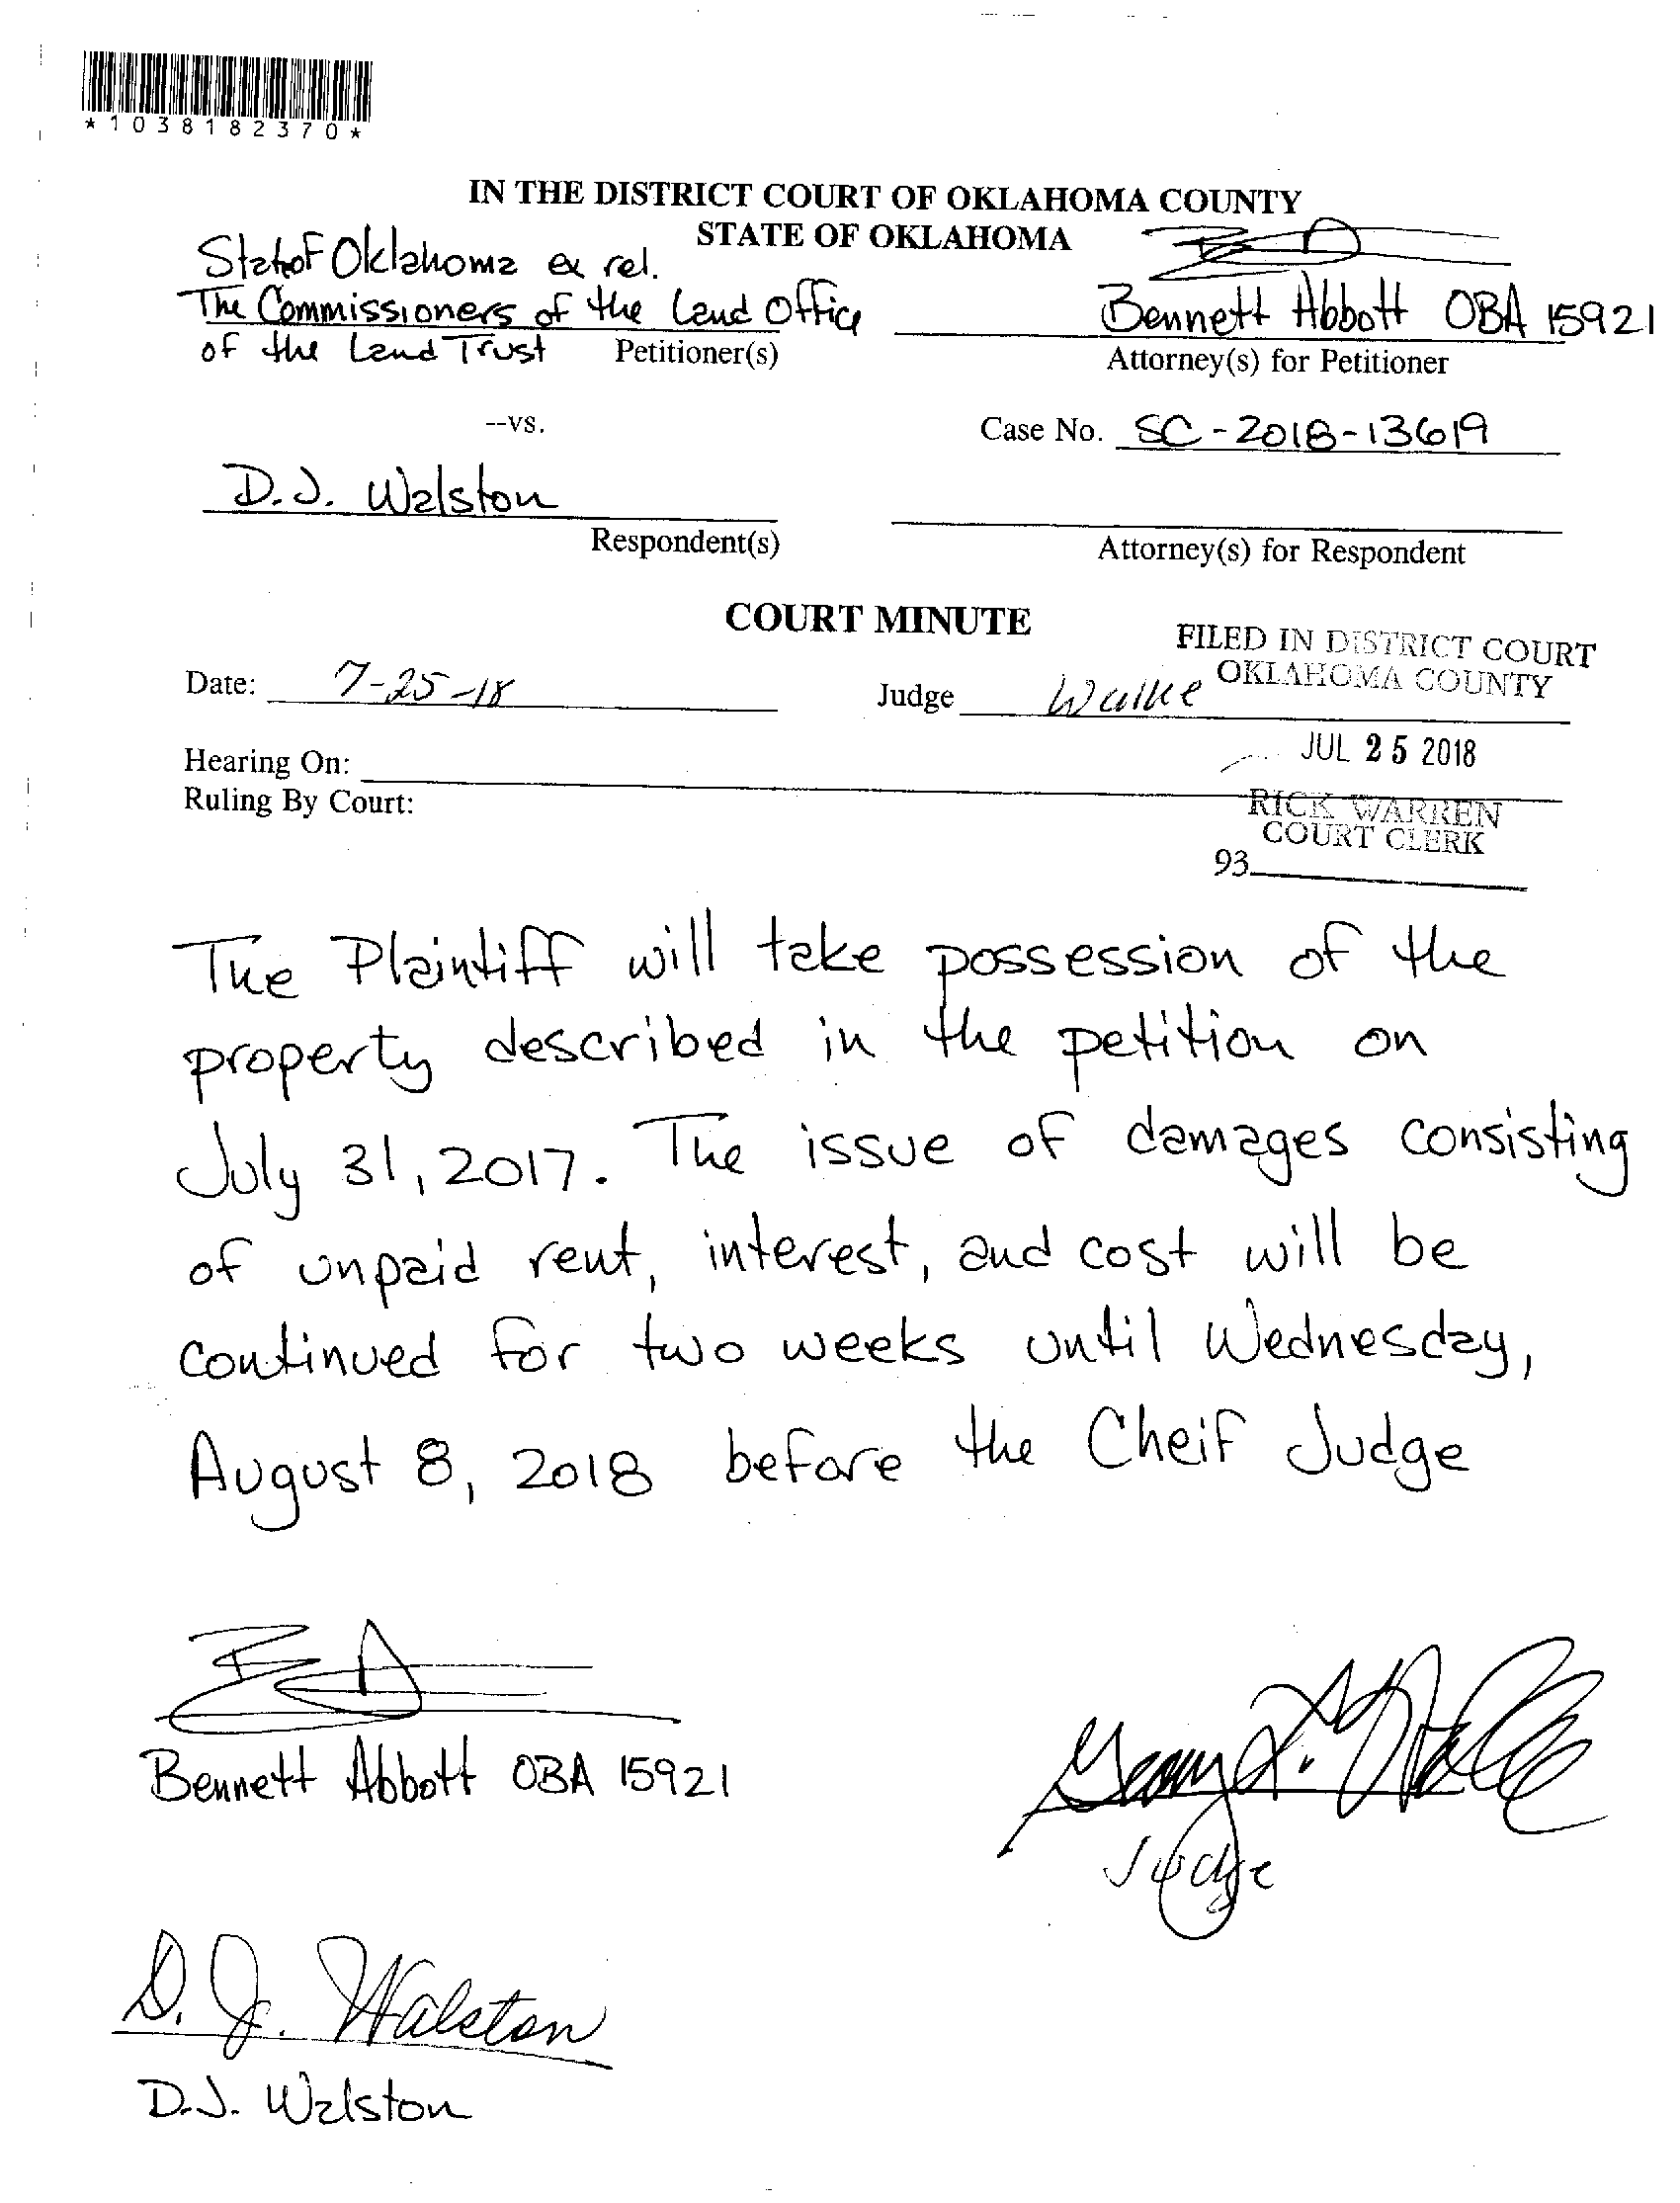 *1038182370*
IN THE DISTRICT COURT OF OKLAHOMA COUNTY
STATE OF OKLAHOMA
State of Oklahoma ex rel.
The Commissioners of the Land Office
of the Land Trust Petitioner(s)
Bennett Abbott OBA 15921
Attorney(s) for Petitioner
--vs.
Case No. SC-2018-13619
D.J. Walston
Respondent(s)
Attorney(s) for Respondent
COURT MINUTE
FILED IN DISTRICT COURT
OKLAHOMA COUNTY
Date: 7-25-18 Judge Walke
JUL 25 2018
Hearing On:
Ruling By Court:
RICK WARREN
COURT CLERK
93
The Plaintiff will take possession of the
property described in the petition on
July 31, 2017. The issue of damages consisting
of unpaid rent, interest, and cost will be
continued for two weeks until Wednesday,
August 8, 2018 before the Cheif Judge
Bennett Abbott OBA 15921
Judge
D. J. Walston
D.J. Walston